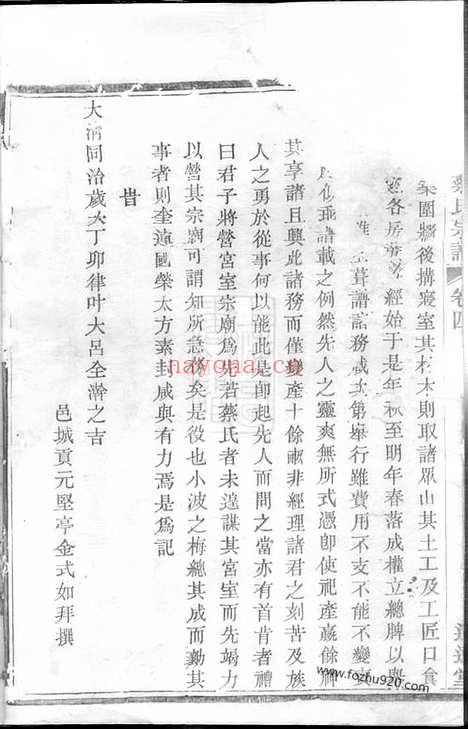 蔡氏宗譜 卷四
築圍牆後搆寢室其材木則取諸眾山其土工及工匠口食
各房 經始于是年秋至明年春落成權立總牌以
葺譜諸務咸次第舉行雖費用不支不能不變
譜載之例然先人之靈爽無所式憑卽使祀產贏餘
其享諸且興此諸務而僅變產十餘畝非經理諸君之刻苦及族
人之勇於從事何以能此是卽起先人而問之當亦有首肯者禮
曰君子將營宮室宗廟爲先若蔡氏者未遑謀其宮室而先竭力
以營其宗廟可謂知所急務矣是役也小波之梅總其成而勤其
事者則奎蓮國榮太方素封咸與有力焉是爲記
昔
大淸同治歲次丁卯律叶大呂全澣之吉
邑城貢元堅亭金式如拜撰
nayona.cn
www.fozhu920.com